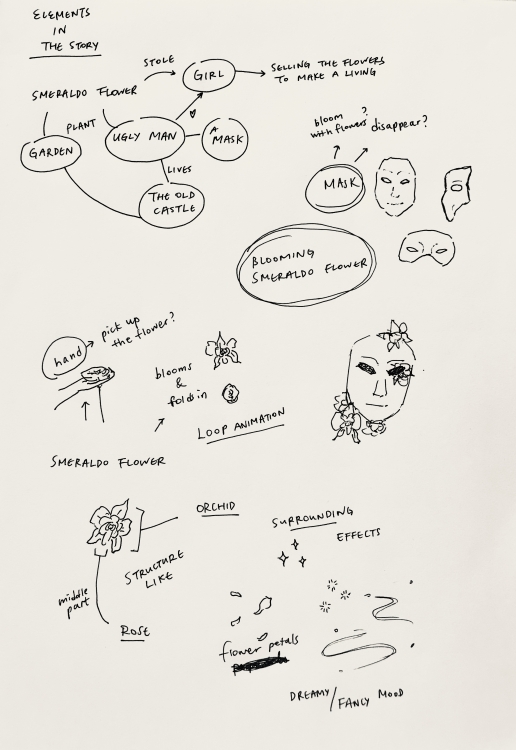 ELEMENTS
IN
THE STORY
STOLE
GIRL
SELLING THE FLOWERS
TO MAKE A LIVING
SMERALDO FLOWER
PLANT
GARDEN
UGLY MAN
A
MASK
LIVES
THE OLD
CASTLE
bloom
with flowers?
disappear?
MASK
BLOOMING
SMERALDO FLOWER
hand
pick up
the flower?
blooms
&
folds in
LOOP ANIMATION
SMERALDO FLOWER
ORCHID
STRUCTURE
LIKE
middle
part
ROSE
SURROUNDING
EFFECTS
flower petals
DREAMY/FANCY MOOD